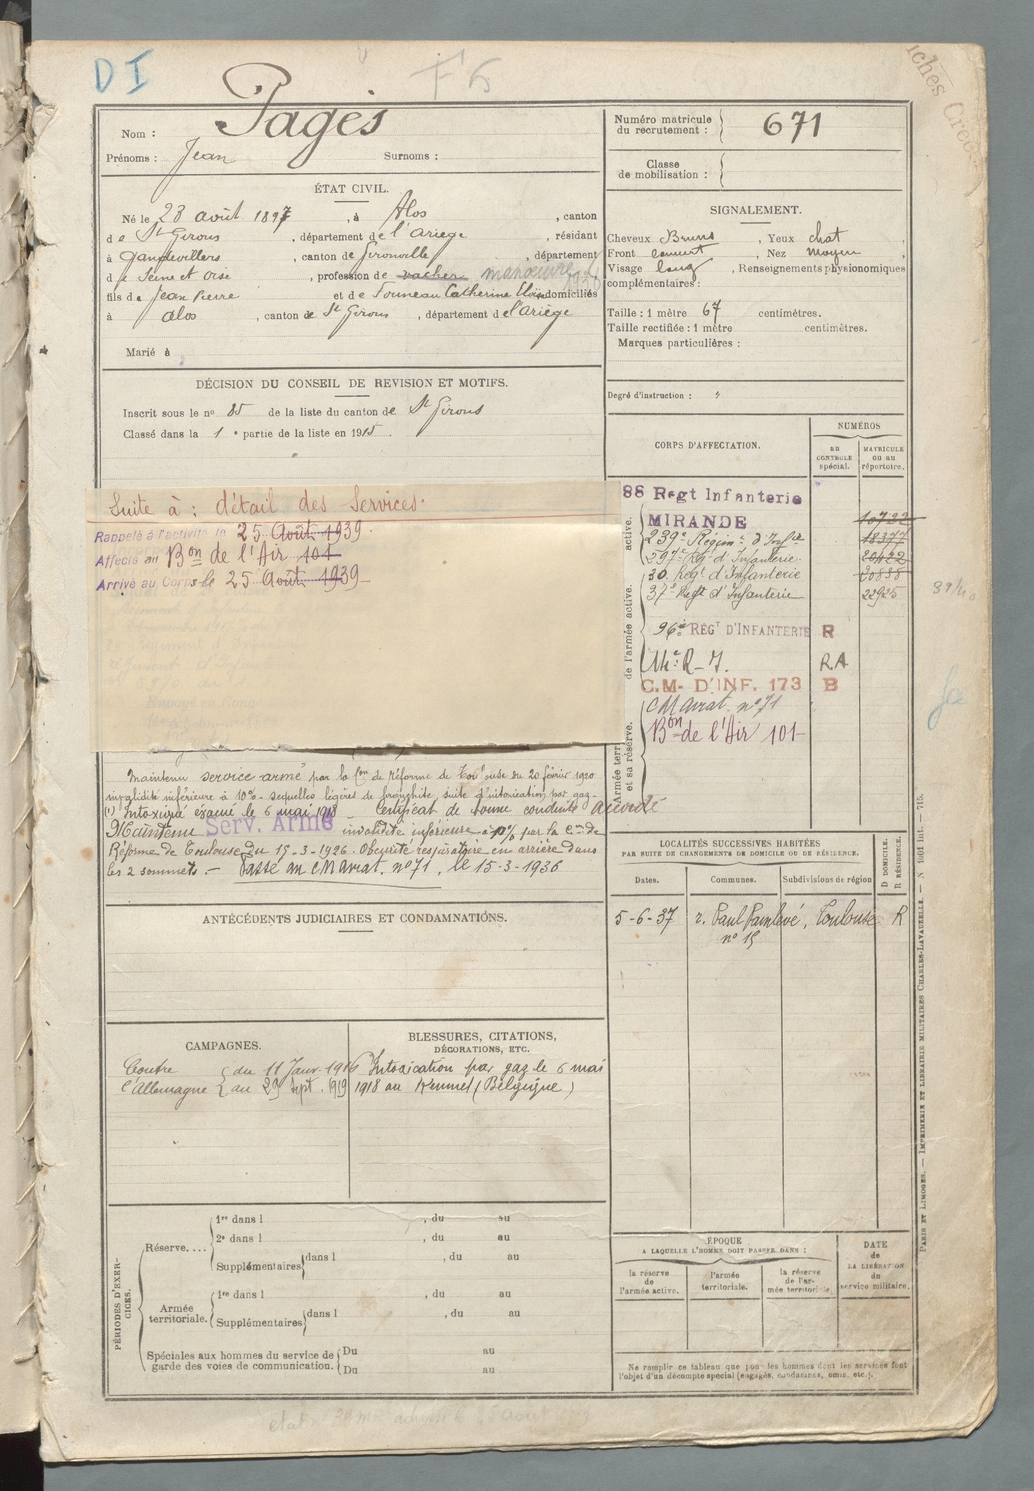 D I
Nom : Pagès
Prénoms : Jean Surnoms :
Numéro matricule
du recrutement : 671
Classe
de mobilisation :
ÉTAT CIVIL.
Né le 23 août 1897, à Alos, canton
de St Girons, département de l'Ariège, résidant
à Gandevillers, canton de Gironville, département
de Seine et Oise, profession de vacher manœuvre 1936
fils de Jean Pierre et de domiciliés
à Alos, canton de St Girons, département de l'Ariège
Marié à
SIGNALEMENT.
Cheveux Bruns, Yeux chat
Front , Nez moyen,
Visage long, Renseignements physionomiques
complémentaires :
Taille : 1 mètre 67 centimètres.
Taille rectifiée : 1 mètre centimètres.
Marques particulières :
Degré d'instruction :
DÉCISION DU CONSEIL DE REVISION ET MOTIFS.
Inscrit sous le no 85 de la liste du canton de St Girons
Classé dans la 1e partie de la liste en 1915.
Suite à : détail des Services.
Rappelé à l'activité le 25 Août 1939.
Affecté au Bon de l'Air 101
Arrivé au Corps le 25 Août 1939
CORPS D'AFFECTATION.
NUMÉROS
au
CONTROLE
spécial.
MATRICULE
ou au
répertoire.
88 Regt Infanterie
MIRANDE 10722
239e Régiment d'Infie 18377
297e Regt d'Infanterie 20422
30. Regt d'Infanterie 20838
37e Regt d'Infanterie 22925
96e REGT D'INFANTERIE R
RA
C.M. D'INF. 173 B
CM Aviat. no 71
Bon de l'Air 101
de l'armée active.
et sa réserve.
Maintenu service armé par la Con de réforme de Toulouse du 20 février 1920
invalidité inférieure à 10% - sequelles légères de bronchite, suite d'intoxication par gaz -
(1) Intoxiqué évacué le 6 mai 1918 Certificat de bonne conduite accordé
Maintenu Serv. Armé invalidité inférieure à 10% par la Con de
Réforme de Toulouse du 15-3-1926. Obscurité respiratoire en arrière dans
les 2 sommets. - Passé au CM Aviat. no 71, le 15-3-1936
ANTÉCÉDENTS JUDICIAIRES ET CONDAMNATIONS.
LOCALITÉS SUCCESSIVES HABITÉES
PAR SUITE DE CHANGEMENTS DE DOMICILE OU DE RÉSIDENCE.
Dates. Communes. Subdivisions de région
D DOMICILE.
R RÉSIDENCE.
5-6-37 r. Paul Painlevé, Toulouse R
no 15
CAMPAGNES.
Contre du 11 Janv. 1916
l'Allemagne au 29 Sept. 1919
BLESSURES, CITATIONS,
DÉCORATIONS, ETC.
Intoxication par gaz le 6 mai
1918 au Kemmel (Belgique)
PÉRIODES D'EXERCICES.
Réserve....
1re dans l , du au
2e dans l , du au
Supplémentaires dans l , du au
Armée
territoriale.
1re dans l , du au
Supplémentaires dans l , du au
Spéciales aux hommes du service de
garde des voies de communication.
Du au
Du au
ÉPOQUE
A LAQUELLE L'HOMME DOIT PASSER DANS :
la réserve
de
l'armée active.
l'armée
territoriale.
la réserve
de l'ar-
mée territoriale
DATE
de
LA LIBÉRATION
du
service militaire.
Ne remplir ce tableau que pour les hommes dont les services font
l'objet d'un décompte spécial (engagés, condamnés, omis, etc.).
PARIS ET LIMOGES. — IMPRIMERIE ET LIBRAIRIE MILITAIRES CHARLES-LAVAUZELLE.